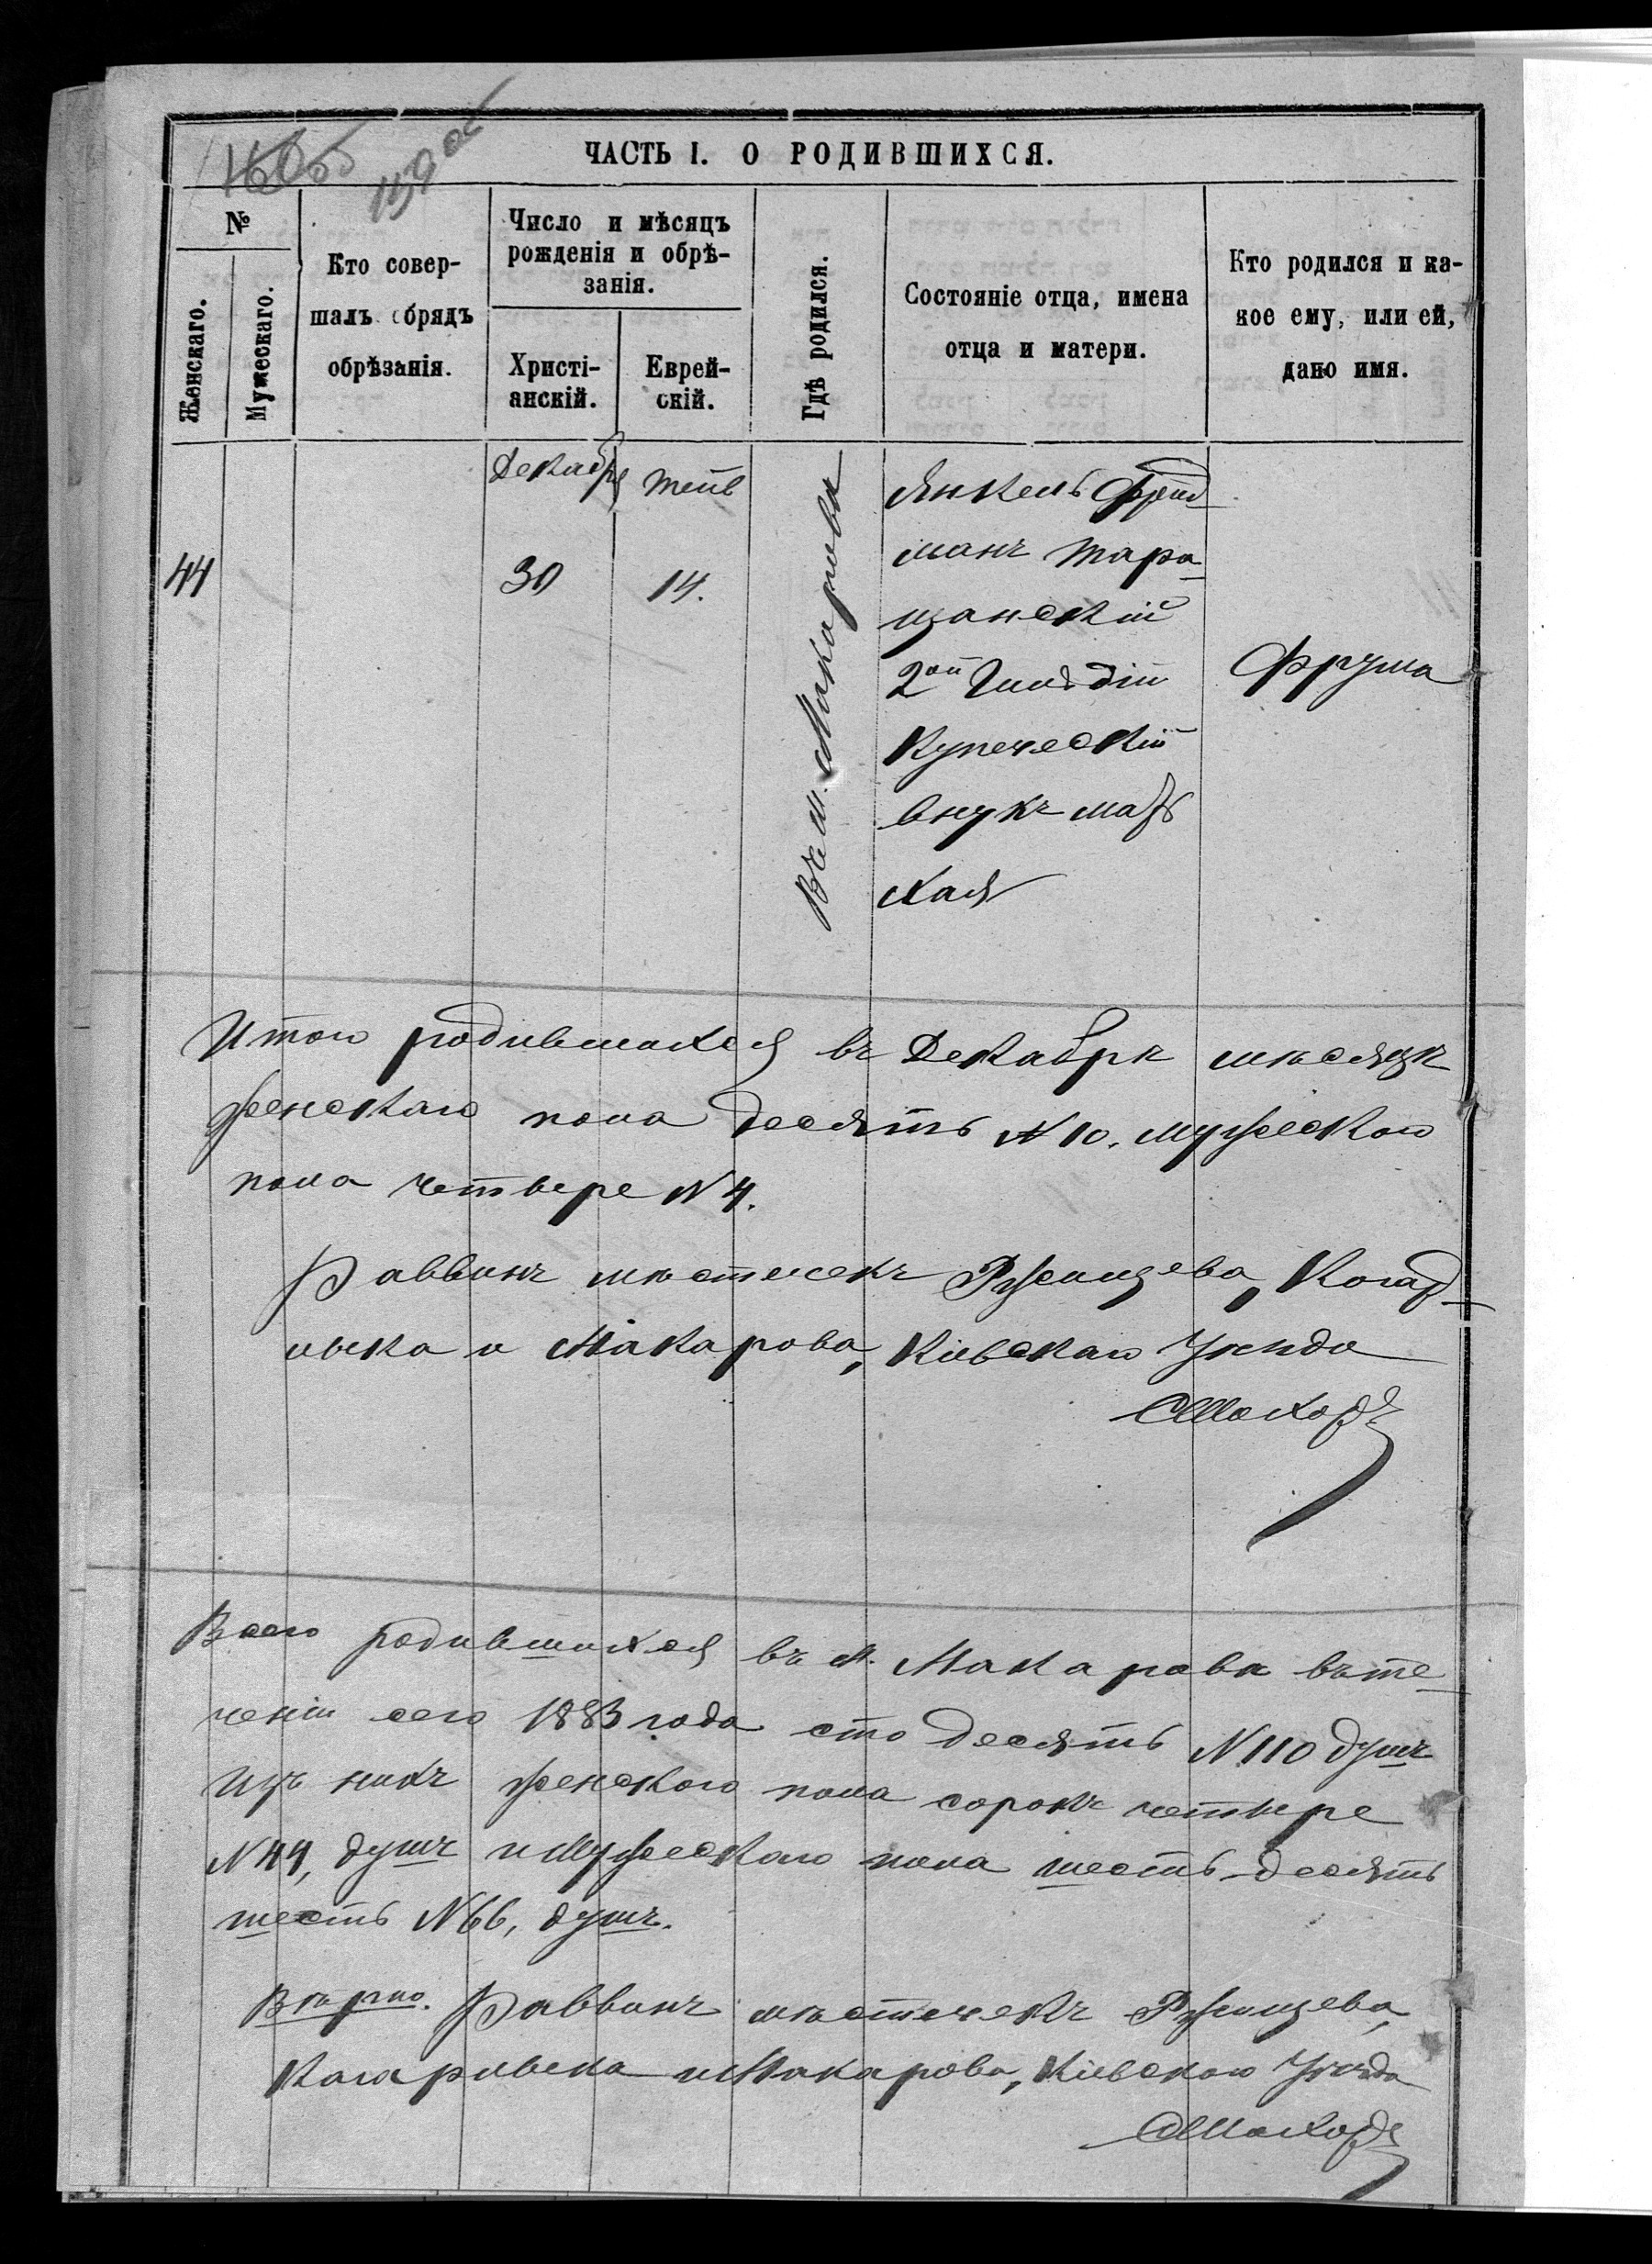 159 об
ЧАСТЬ I. О РОДИВШИХСЯ.
№
Женскаго.
Мужескаго.
Кто совер-
шалъ обрядъ
обрѣзанія.
Число и мѣсяцъ
рожденія и обрѣ-
занія.
Христі-
анскій.
Еврей-
скій.
Гдѣ родился.
Состояніе отца, имена
отца и матери.
Кто родился и ка-
кое ему, или ей,
дано имя.
44
Декабря
30
Тейв
14.
Въ м. Макаровѣ
Янкель Фрид
манъ Тара
щанскій
2ой Гильдіи
Купеческій
внукъ мать
Хая
Фрума
Итого родившихся въ Декабрѣ мѣсяцѣ
женскаго пола десять №10. мужескаго
пола четверо №4.
Раввинъ мѣстечекъ Ржищева, Кагар
лыка и Макарова, Кіевскаго Уѣзда
Всего родившихся въ м. Макаровѣ въ те
ченіи сего 1883 года сто десять №110 душъ
Изъ нихъ женского пола сорокъ четыре
№44, душъ и Мужескаго пола шесть-десять
шесть №66, душъ.
Вѣрно. Раввинъ мѣстечекъ Ржищева,
Кагарлыка и Макарова, Кіевскаго Уѣзда